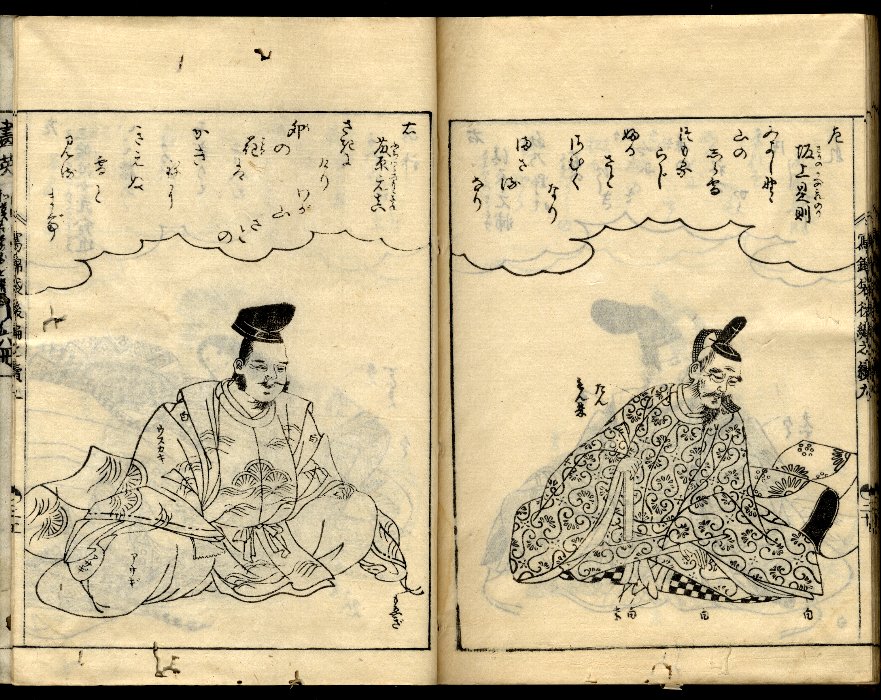 左
坂上是則
さかのうへのこれのり
みよしのゝ
山の
しら雪
つもる
らし
ふる
さと
さむく
なり
まさる
なり
たん
もん黒
白
白
白
右
藤原元真
さきに
けり
わが山
さとの
卯の
花は
かき
ねに
きえぬ
雪と
みるまで
ウスカキ
アサギ
もえぎ